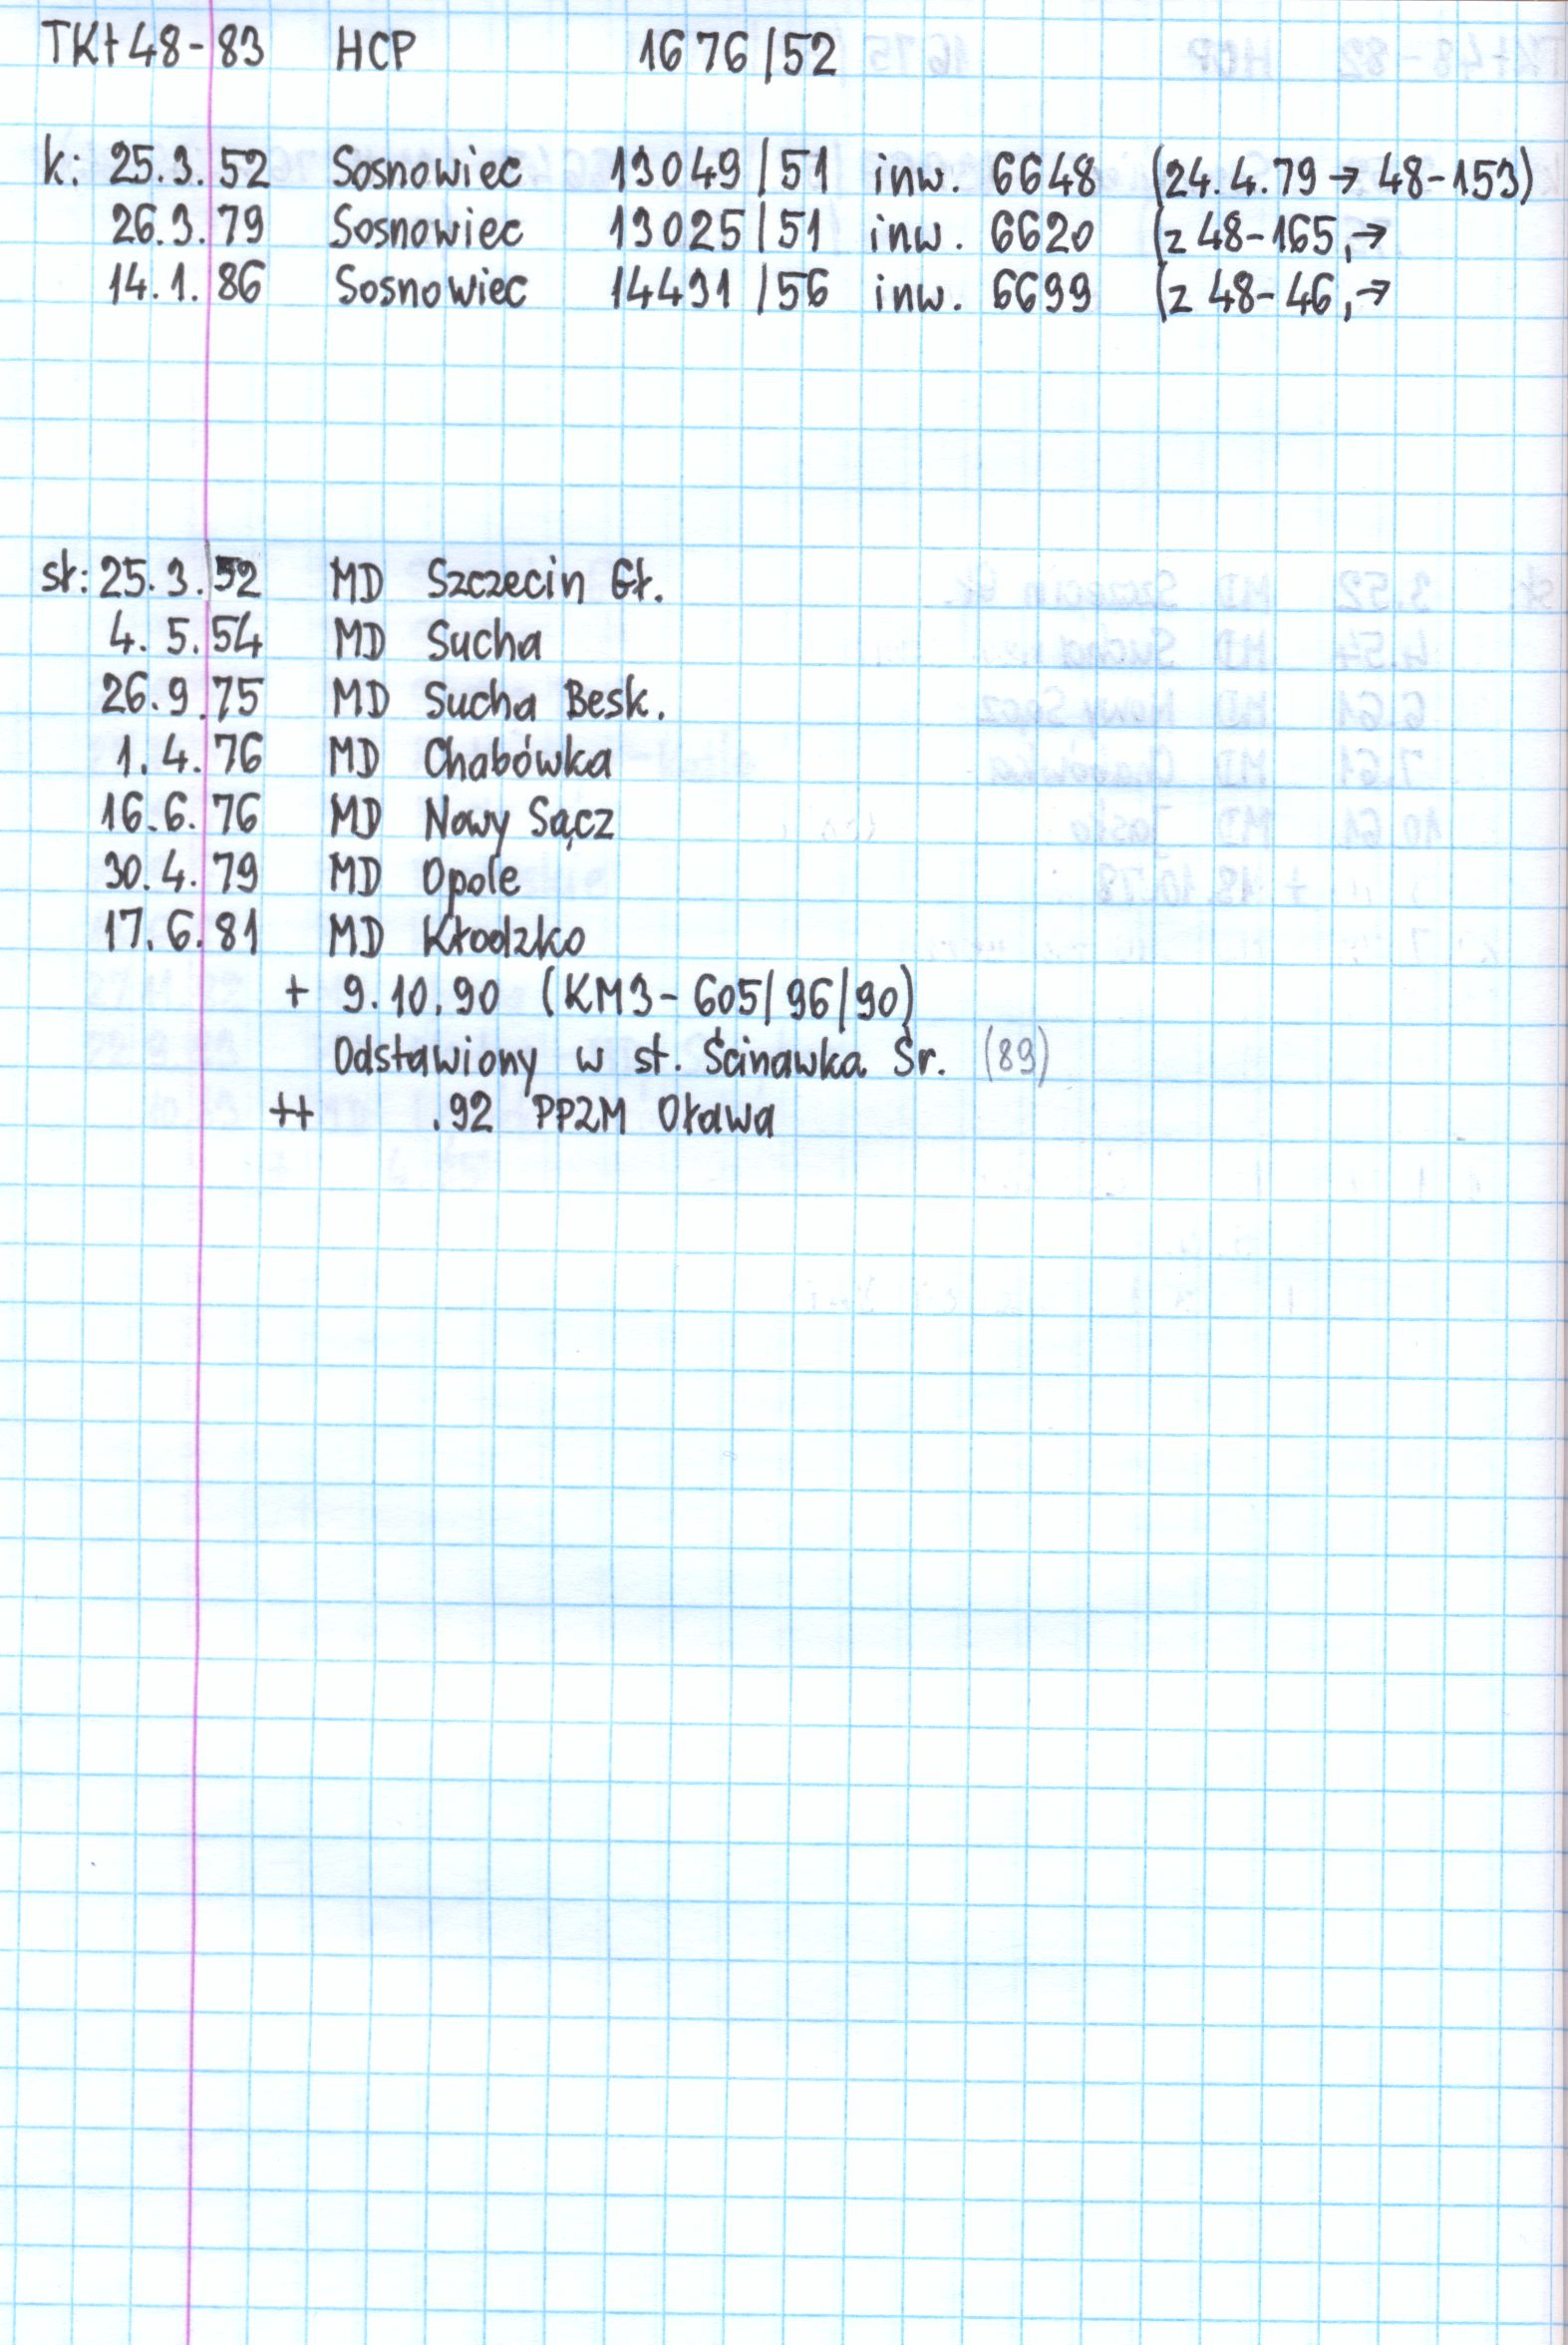 TKt48-83 HCP 1676/52
k: 25.3.52 Sosnowiec 13049/51 inw. 6648 (24.4.79 → 48-153)
26.3.79 Sosnowiec 13025/51 inw. 6620 (z 48-165, →
14.1.86 Sosnowiec 14491/56 inw. 6699 (z 48-46, →
st: 25.3.52 MD Szczecin Gł.
4.5.54 MD Sucha
26.9.75 MD Sucha Besk.
1.4.76 MD Chabówka
16.6.76 MD Nowy Sącz
30.4.79 MD Opole
17.6.81 MD Kłodzko
+ 9.10.90 (KM3-605/96/90)
Odstawiony w st. Ścinawka Śr. (89)
++ .92 PPZM Oława